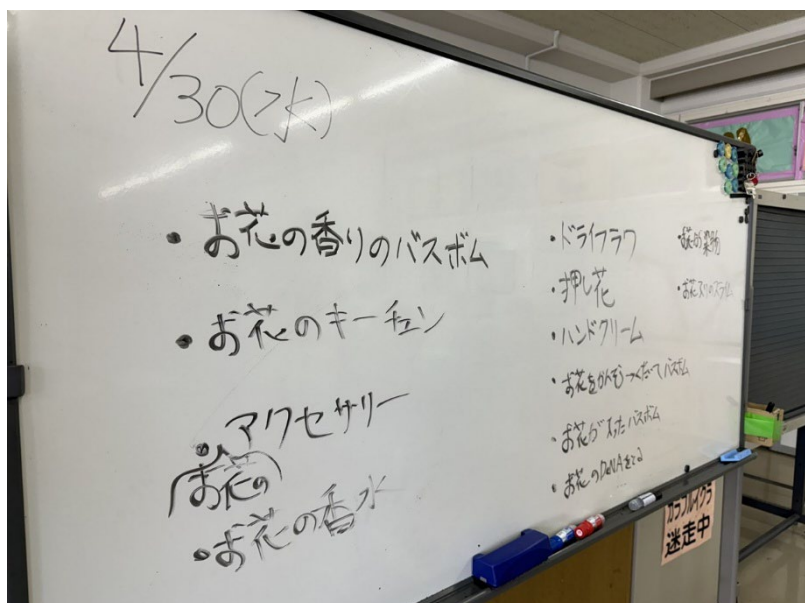 4/30(水)
・お花の香りのバスボム
・お花のキーチェン
・アクセサリー
(お花の)
・お花の香水
・ドライフラワ
・押し花
・ハンドクリーム
・お花をかんそうつくだってバスボム
・お花が入ったバスボム
・お花のDNAをとる
・お花の染物
・お花入りのスライム
カラフルイクラ
迷走中